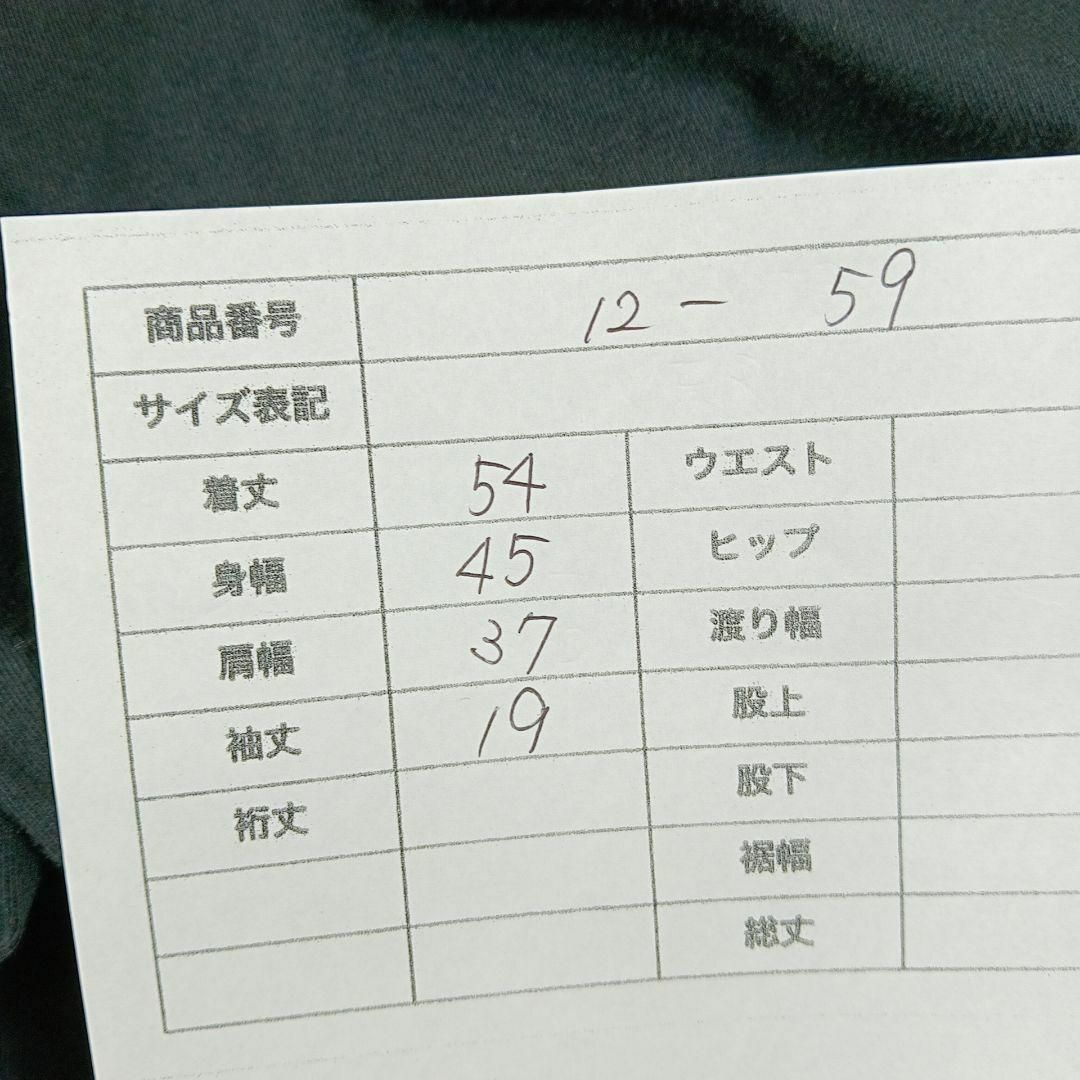 商品番号 12 - 59
サイズ表記
着丈 54 ウエスト
身幅 45 ヒップ
肩幅 37 渡り幅
袖丈 19 股上
裄丈 股下
裾幅
総丈